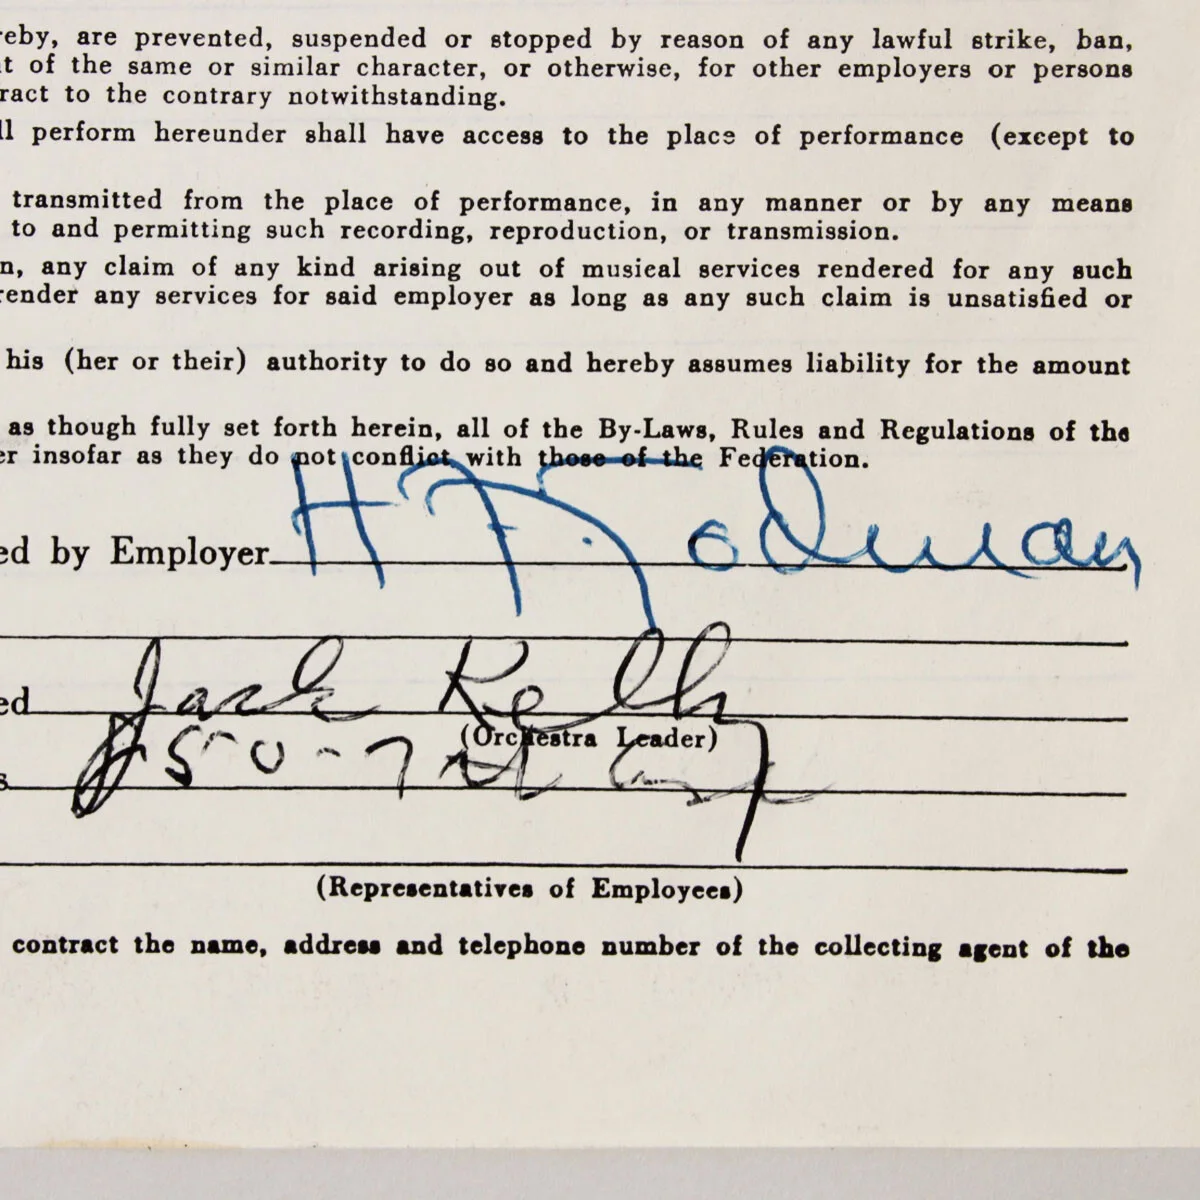 reby, are prevented, suspended or stopped by reason of any lawful strike, ban,
t of the same or similar character, or otherwise, for other employers or persons
ract to the contrary notwithstanding.
ll perform hereunder shall have access to the place of performance (except to
transmitted from the place of performance, in any manner or by any means
to and permitting such recording, reproduction, or transmission.
n, any claim of any kind arising out of musical services rendered for any such
render any services for said employer as long as any such claim is unsatisfied or
his (her or their) authority to do so and hereby assumes liability for the amount
as though fully set forth herein, all of the By-Laws, Rules and Regulations of the
er insofar as they do not conflict with those of the Federation.
ed by Employer H
ed Jack Kelly
(Orchestra Leader)
s 50-7
(Representatives of Employees)
contract the name, address and telephone number of the collecting agent of the